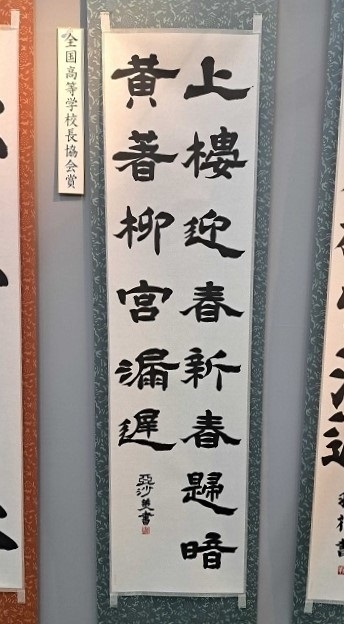 上樓迎春新春歸暗
黃著柳宮漏遲
亞沙美書
全国高等学校長協会賞